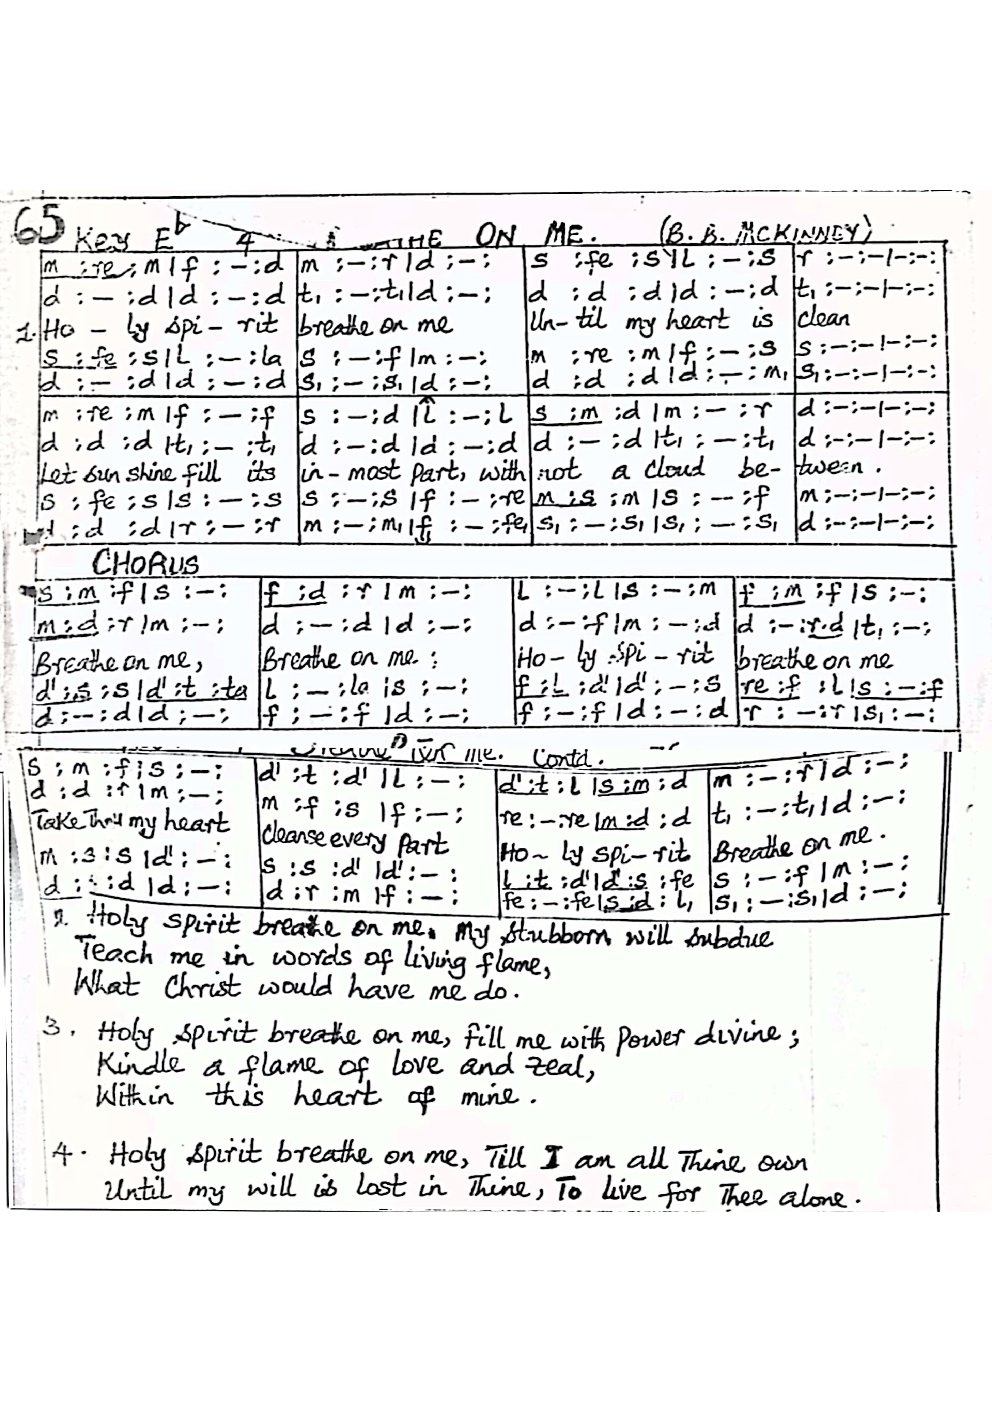 65 Key Eb 4 ON ME. (B. B. MCKINNEY)
m :re :m|f :—:d m :—:r|d :—: s :fe :s|L :—:s r :—:—|—:—:
d :— :d|d :—:d t₁ :—:t₁|d :—: d :d :d|d :—:d t₁ :—:—|—:—:
1. Ho – ly spi – rit breathe on me Un-til my heart is clean
s :fe :s|L :—:la s :—:f|m :—: m :re :m|f :—:s s :—:—|—:—:
d :— :d|d :—:d s₁ :—:s₁|d :—: d :d :d|d :—:m₁ s₁:—:—|—:—:
m :re :m|f :—:f s :—:d|L :—:L s :m :d|m :— :r d :—:—|—:—:
d :d :d|t₁ :—:t₁ d :—:d|d :—:d d :— :d|t₁ :—:t₁ d :—:—|—:—:
Let sun shine fill its in-most part, with not a cloud be- tween.
s :fe :s|s :—:s s :—:s|f :—:re m :s :m|s :—:f m :—:—|—:—:
:d :d|r :—:r m :—:m₁|f₁ :—:fe₁ s₁ :—:s₁|s₁ :—:s₁ d :—:—|—:—:
CHORUS
s :m :f|s :—: f :d :r|m :—: L :—:L|s :—:m f :m :f|s :—:
m :d :r|m :—: d :—:d|d :—: d :—:f|m :—:d d :—:r.d|t₁ :—:
Breathe on me, Breathe on me. Ho – ly spi – rit breathe on me
d' :s :s|d' :t :ta L :—:la|s :—: f :L :d'|d' :—:s re :f :L|s :—:f
d :—:d|d :—: f :—:f|d :—: f :—:f|d :—:d r :—:r|s₁ :—:
me. Contd.
s :m :f|s :—: d' :t :d'|L :—: d' :t :L|s :m :d m :—:r|d :—:
d :d :r|m :—: m :f :s|f :—: re :—:re|m :d :d t₁ :—:t₁|d :—:
Take Thou my heart Cleanse every part Ho~ ly spi – rit Breathe on me.
m :s :s|d' :—: s :s :d'|d' :—: L :t :d'|d' :s :fe s :—:f|m :—:
d : :d|d :—: d :r :m|f :—: fe :—:fe|s :d :L₁ s₁ :—:s₁|d :—:
2. Holy spirit breathe on me. My stubborn will subdue
Teach me in words of living flame,
What Christ would have me do.
3. Holy spirit breathe on me, fill me with Power divine;
Kindle a flame of love and zeal,
Within this heart of mine.
4. Holy spirit breathe on me, Till I am all Thine own
Until my will is lost in Thine, To live for Thee alone.